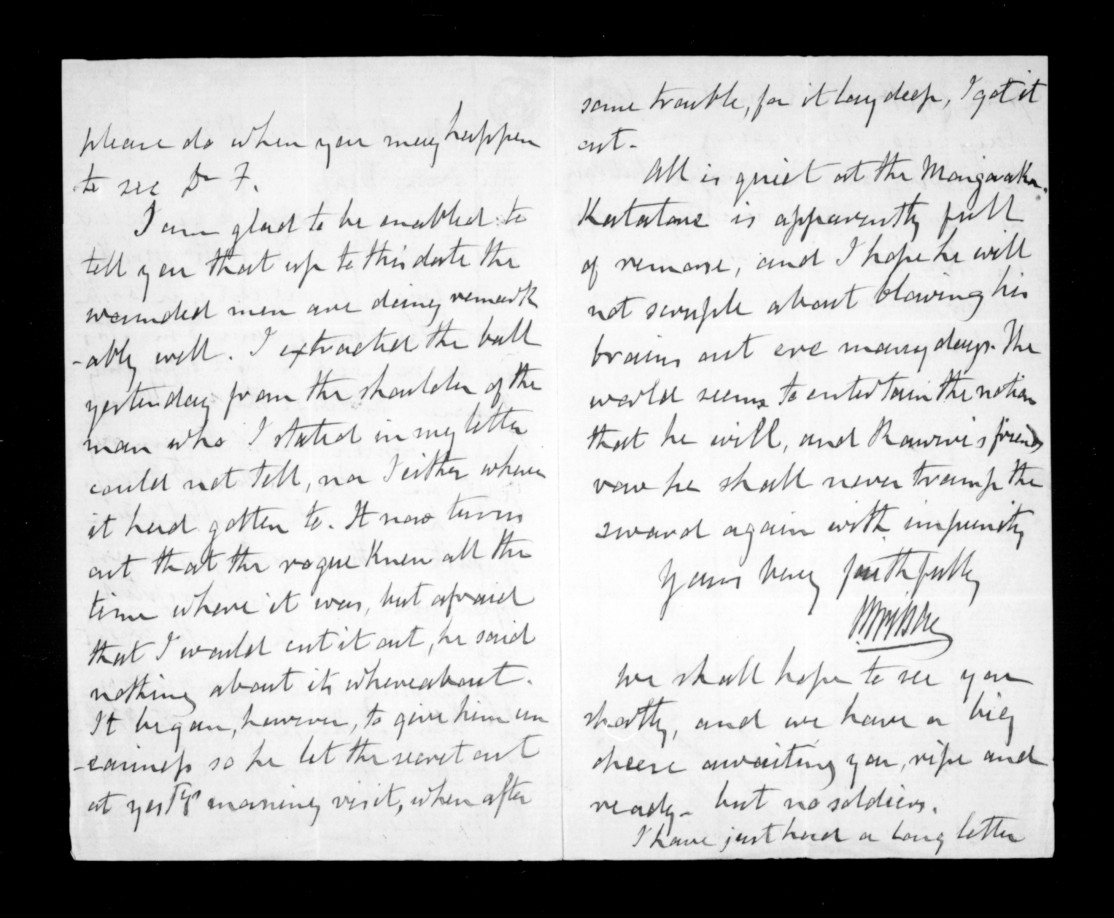 please do when you may happen
to see Dr F.
I am glad to be enabled to
tell you that up to this date the
wounded men are doing remark
-ably well. I extracted the ball
yesterday from the shoulder of the
man who I stated in my letter
could not tell, nor I either where
it had gotten to. It now turns
out that the rogue knew all the
time where it was, but afraid
that I would cut it out, he said
nothing about its whereabout.
It began, however, to give him un
-easiness so he let the secret out
at yesty's morning visit, when after
some trouble, for it lay deep, I got it
out.
All is quiet at the Mangawaka.
Katatore is apparently full
of remorse, and I hope he will
not scruple about blowing his
brains out ere many days. The
world seems to entertain the notion
that he will, and Rawiri's friends
vow he shall never tramp the
sward again with impunity
Yours very faithfully
We shall hope to see you
shortly, and we have a big
cheese awaiting you, ripe and
ready - but no soldiers.
I have just had a long letter